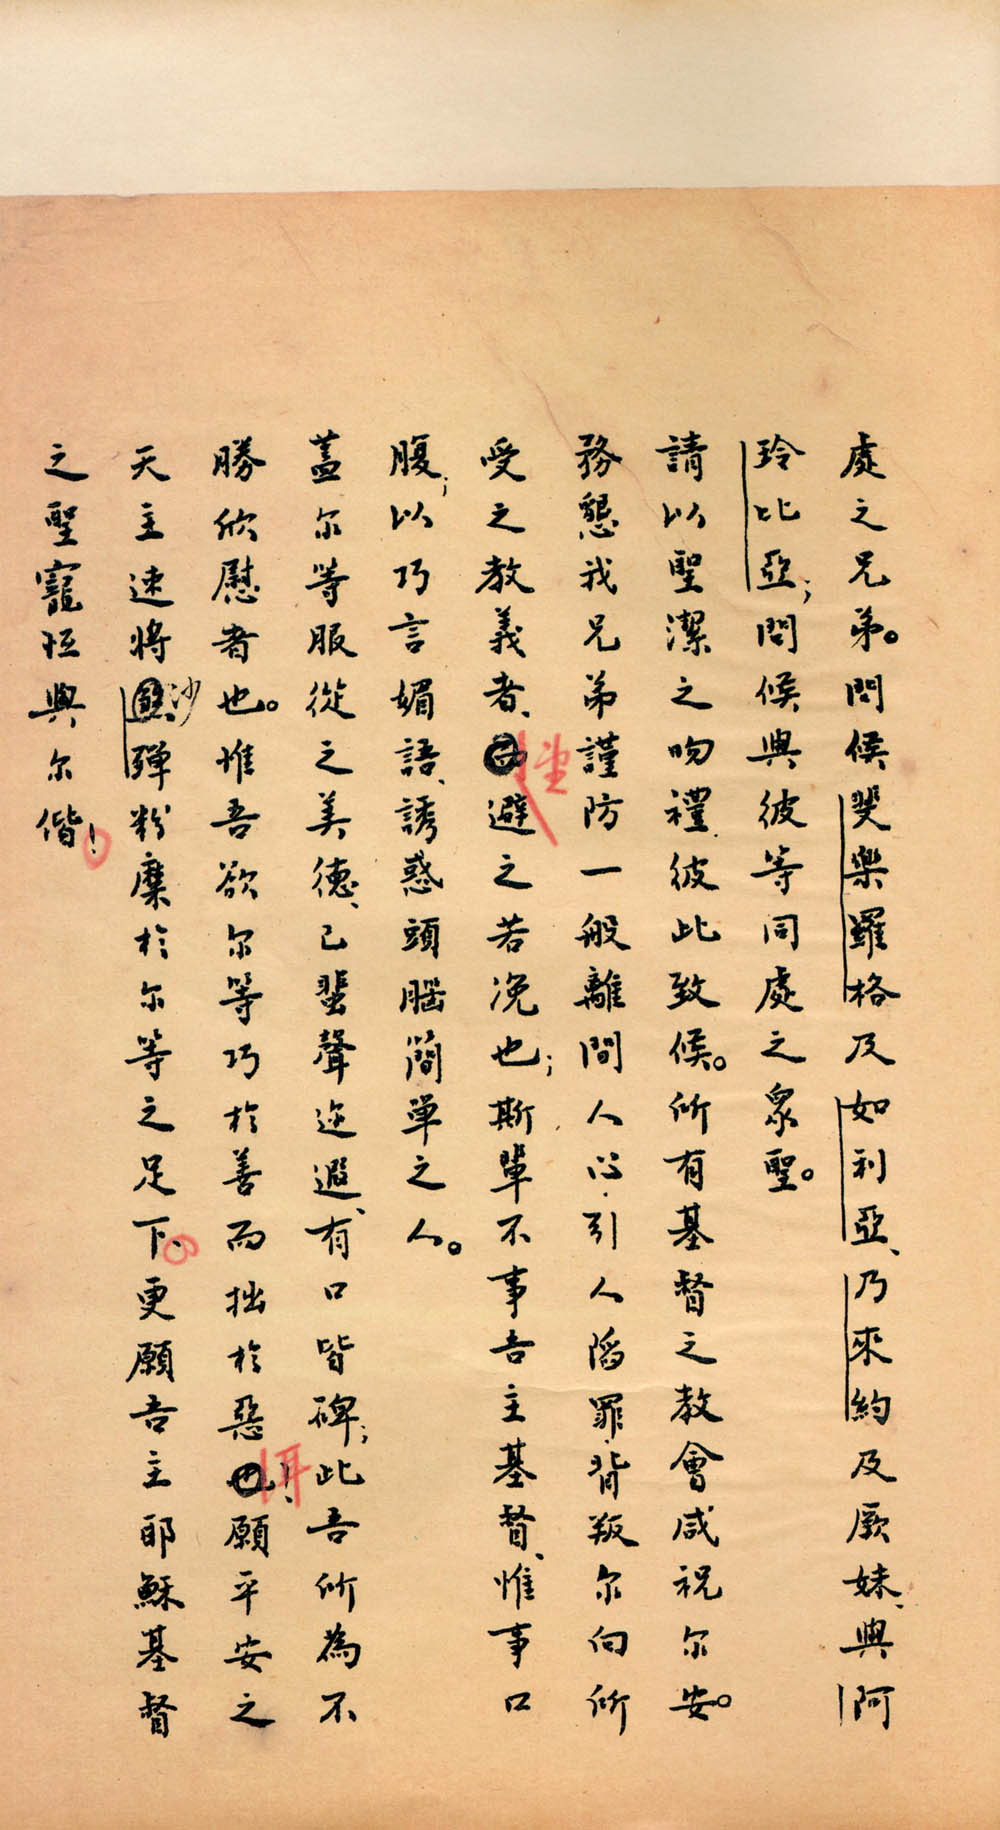 處之兄弟。問候斐樂羅格及如利亞、乃來約及厥妹、與阿
玲比亞；問候與彼等同處之衆聖。
請以聖潔之吻禮、彼此致候。所有基督之教會咸祝尔安。
務懇我兄弟謹防一般離間人心、引人陷罪、背叛尔向所
受之教義者、望避之若浼也；斯輩不事吾主基督、惟事口
腹；以巧言媚語、誘惑頭腦簡單之人。
蓋尔等服從之美德、已蜚聲迩遐、有口皆碑；此吾所為不
勝欣慰者也。惟吾欲尔等巧於善而拙於惡耳！願平安之
天主速將沙殫粉糜於尔等之足下。更願吾主耶穌基督
之聖寵恆與尔偕！